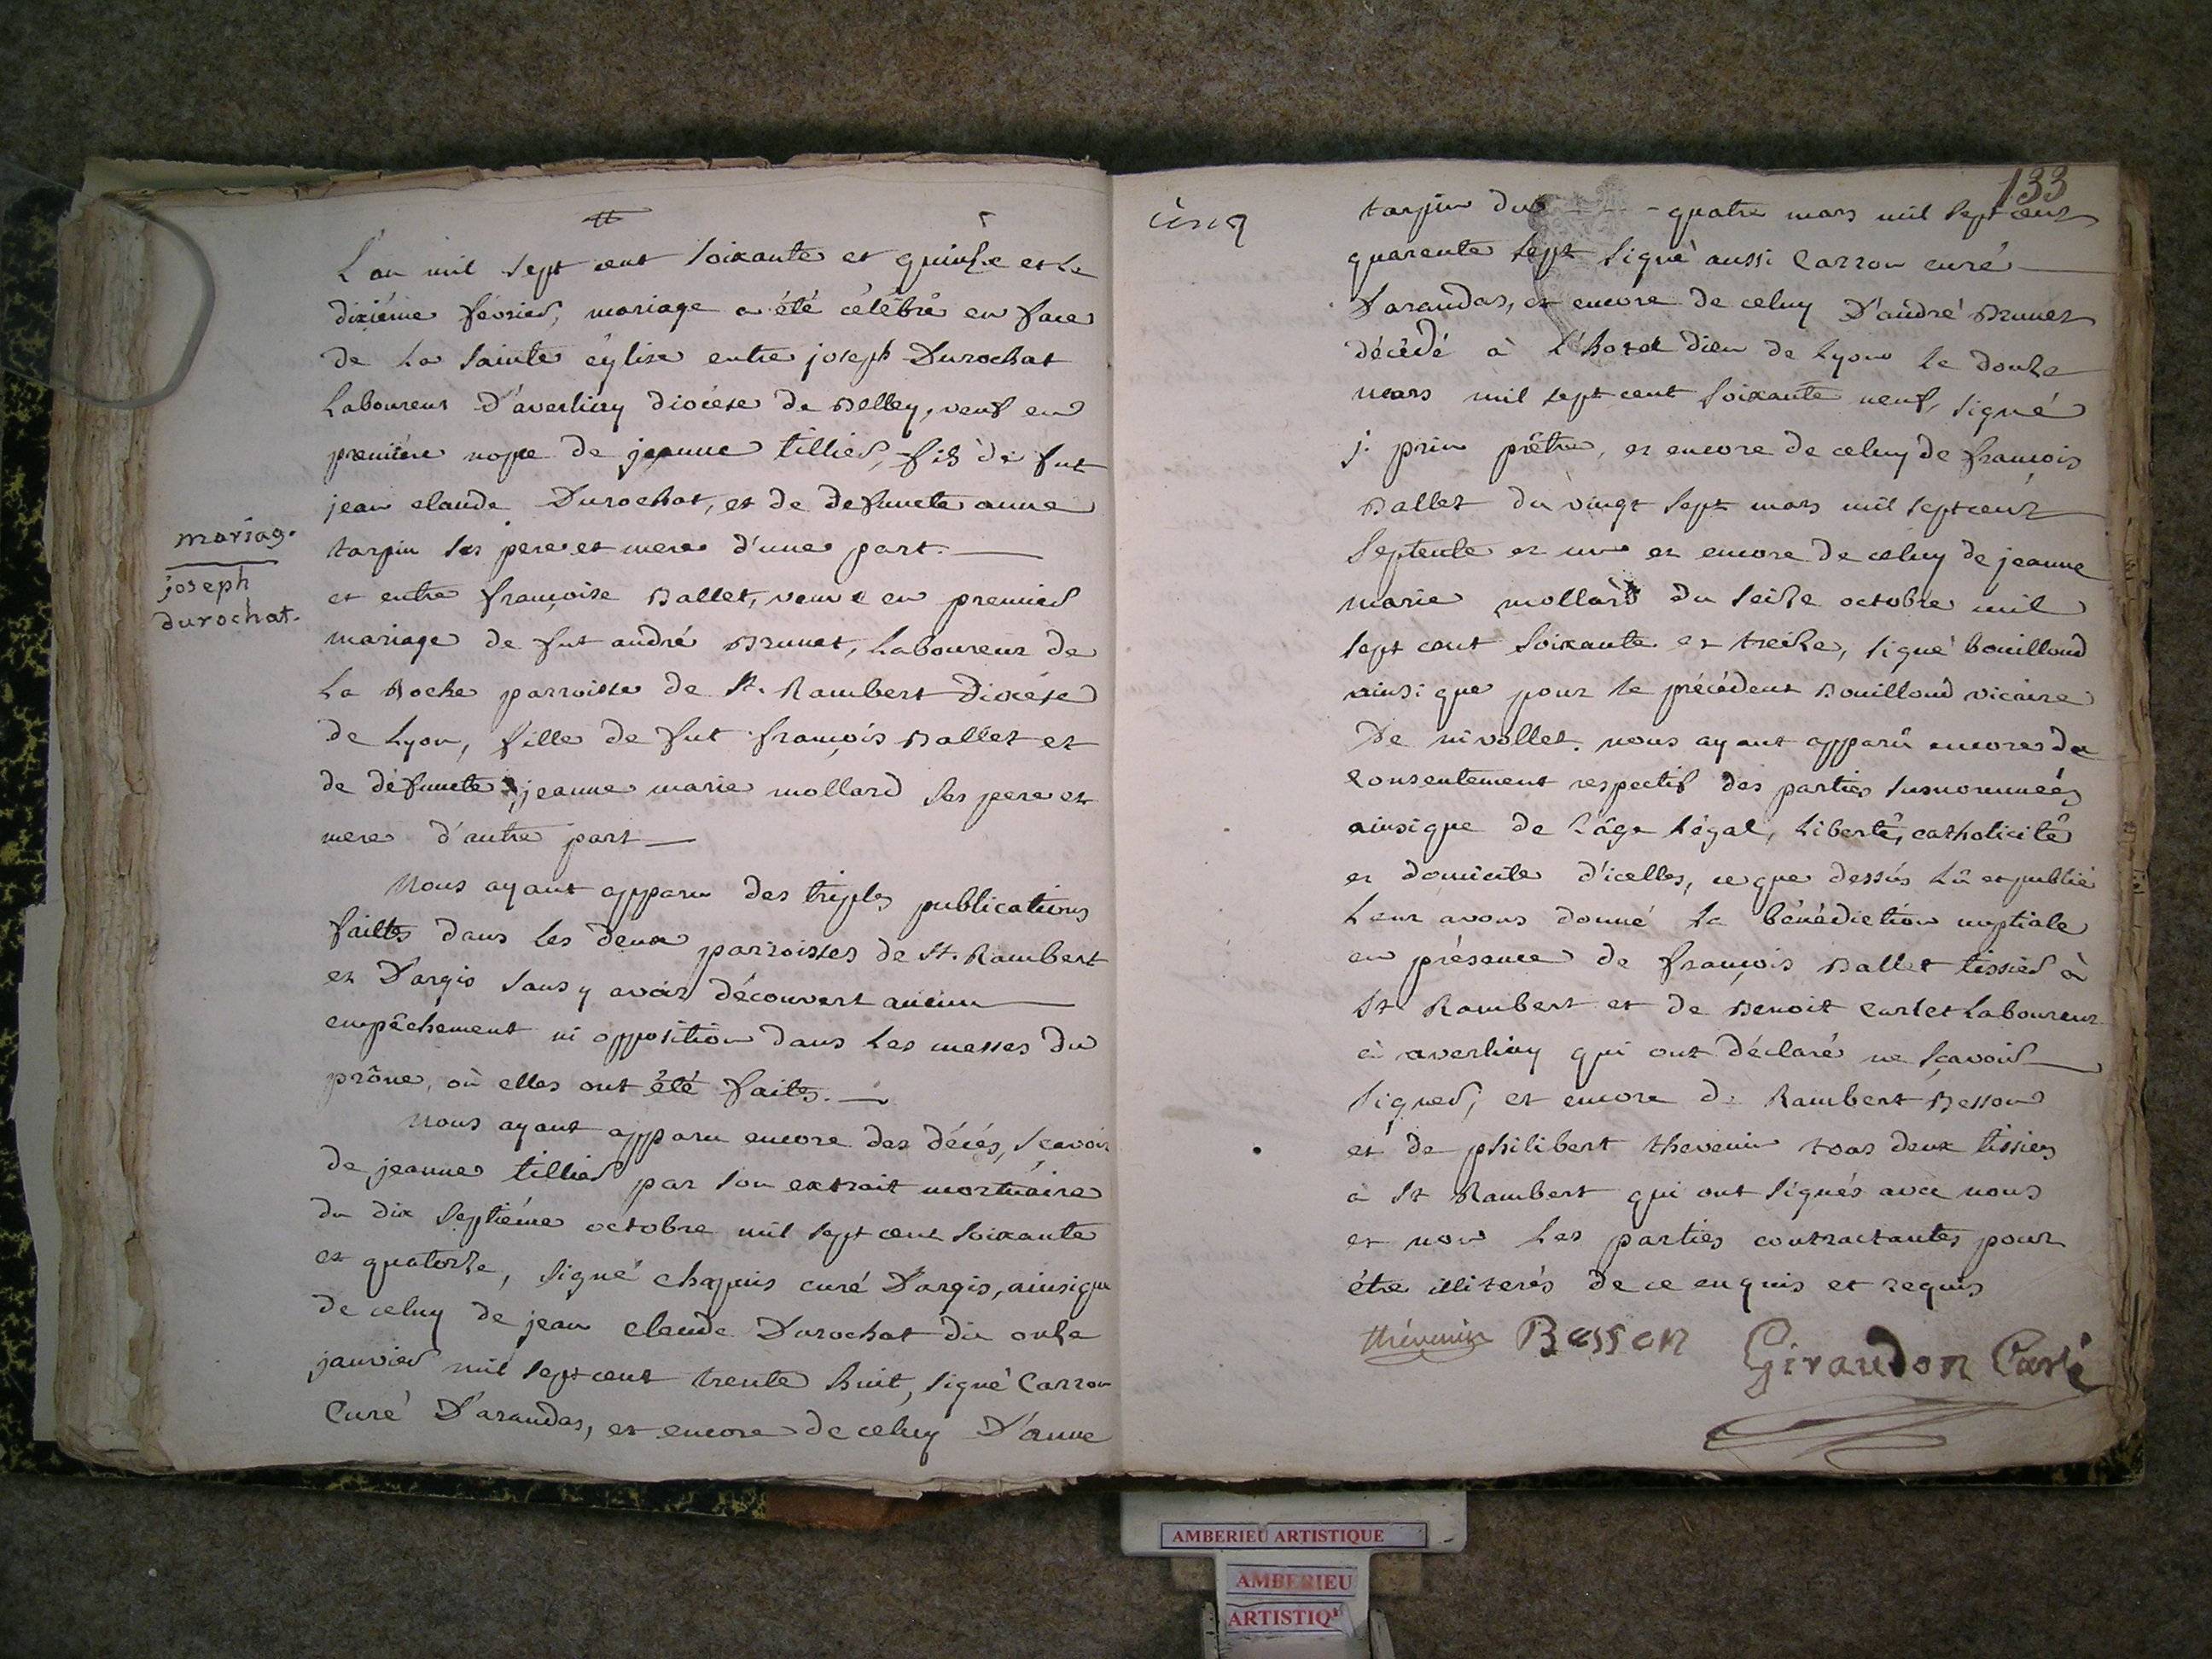 mariag.
joseph
durochat.
L'an mil sept cent soixante et quinze et le
dixiéme février, mariage a été célébré en face
de la sainte église entre joseph Durochat
Laboureur D'averliay diocèse de Belley, veuf en
premiere nopce de jeanne tillier, fils de fut
jean claude Durochat, et de defuncte anne
tarpin ses pere et mere d'une part.
et entre françoise Ballet, veuve en premier
mariage de fut andré Brunet, laboureur de
La Roche parroisse de St. Rambert Diocèse
de Lyon, fille de fut françois Ballet et
de défuncte jeanne marie mollard ses pere et
mere d'autre part
Nous ayant apparu des triples publications
faittes dans les deux parroisses de St. Rambert
et D'argis sans y avoir découvert aucun
empêchement ni opposition dans les messes du
prône, où elles ont été faites.
Nous ayant apparu encore des décés, scavoir
de jeanne tillier par son extrait mortuaire
du dix septiéme octobre mil sept cent soixante
et quatorze, signé chapuis curé D'argis, ainsi que
de celuy de jean claude Durochat du onze
janvier mil sept cent trente huit, signé Carron
Curé D'arandas, et encore de celuy D'anne
cinq
133
tarpin du quatre mars mil sept cent
quarente sept signé aussi Carron curé
D'arandas, et encore de celuy D'andré Brunet
décédé à L'hotel dieu de Lyon le douze
mars mil sept cent soixante neuf, signé
j. prin prêtre, et encore de celuy de françois
Ballet du vingt sept mars mil sept cent
septente et un et encore de celuy de jeanne
marie mollard du seize octobre mil
sept cent soixante et treize, signé bouilloud
ainsi que pour le précédent Bouilloud vicaire
De nivollet. nous ayant apparû encores du
consentement respectif des parties susnommées
ainsique de l'âge légal, liberté, catholicité
et domicile d'icelles, ce que dessus lû et publié
Leur avons donné la bénédiction nuptiale
en présence de françois Ballet tissier à
St Rambert et de Benoit Carlet Laboureur
à averliay qui ont déclaré ne sçavoir
signer, et encore de Rambert Besson
et de philibert thevenin tous deux tissiers
à St Rambert qui ont signés avec nous
et non les parties contractantes pour
étre illiterés de ce enquis et requis
thévenin Besson Giraudon Curé
AMBERIEU ARTISTIQUE
AMBERIEU
ARTISTIQ